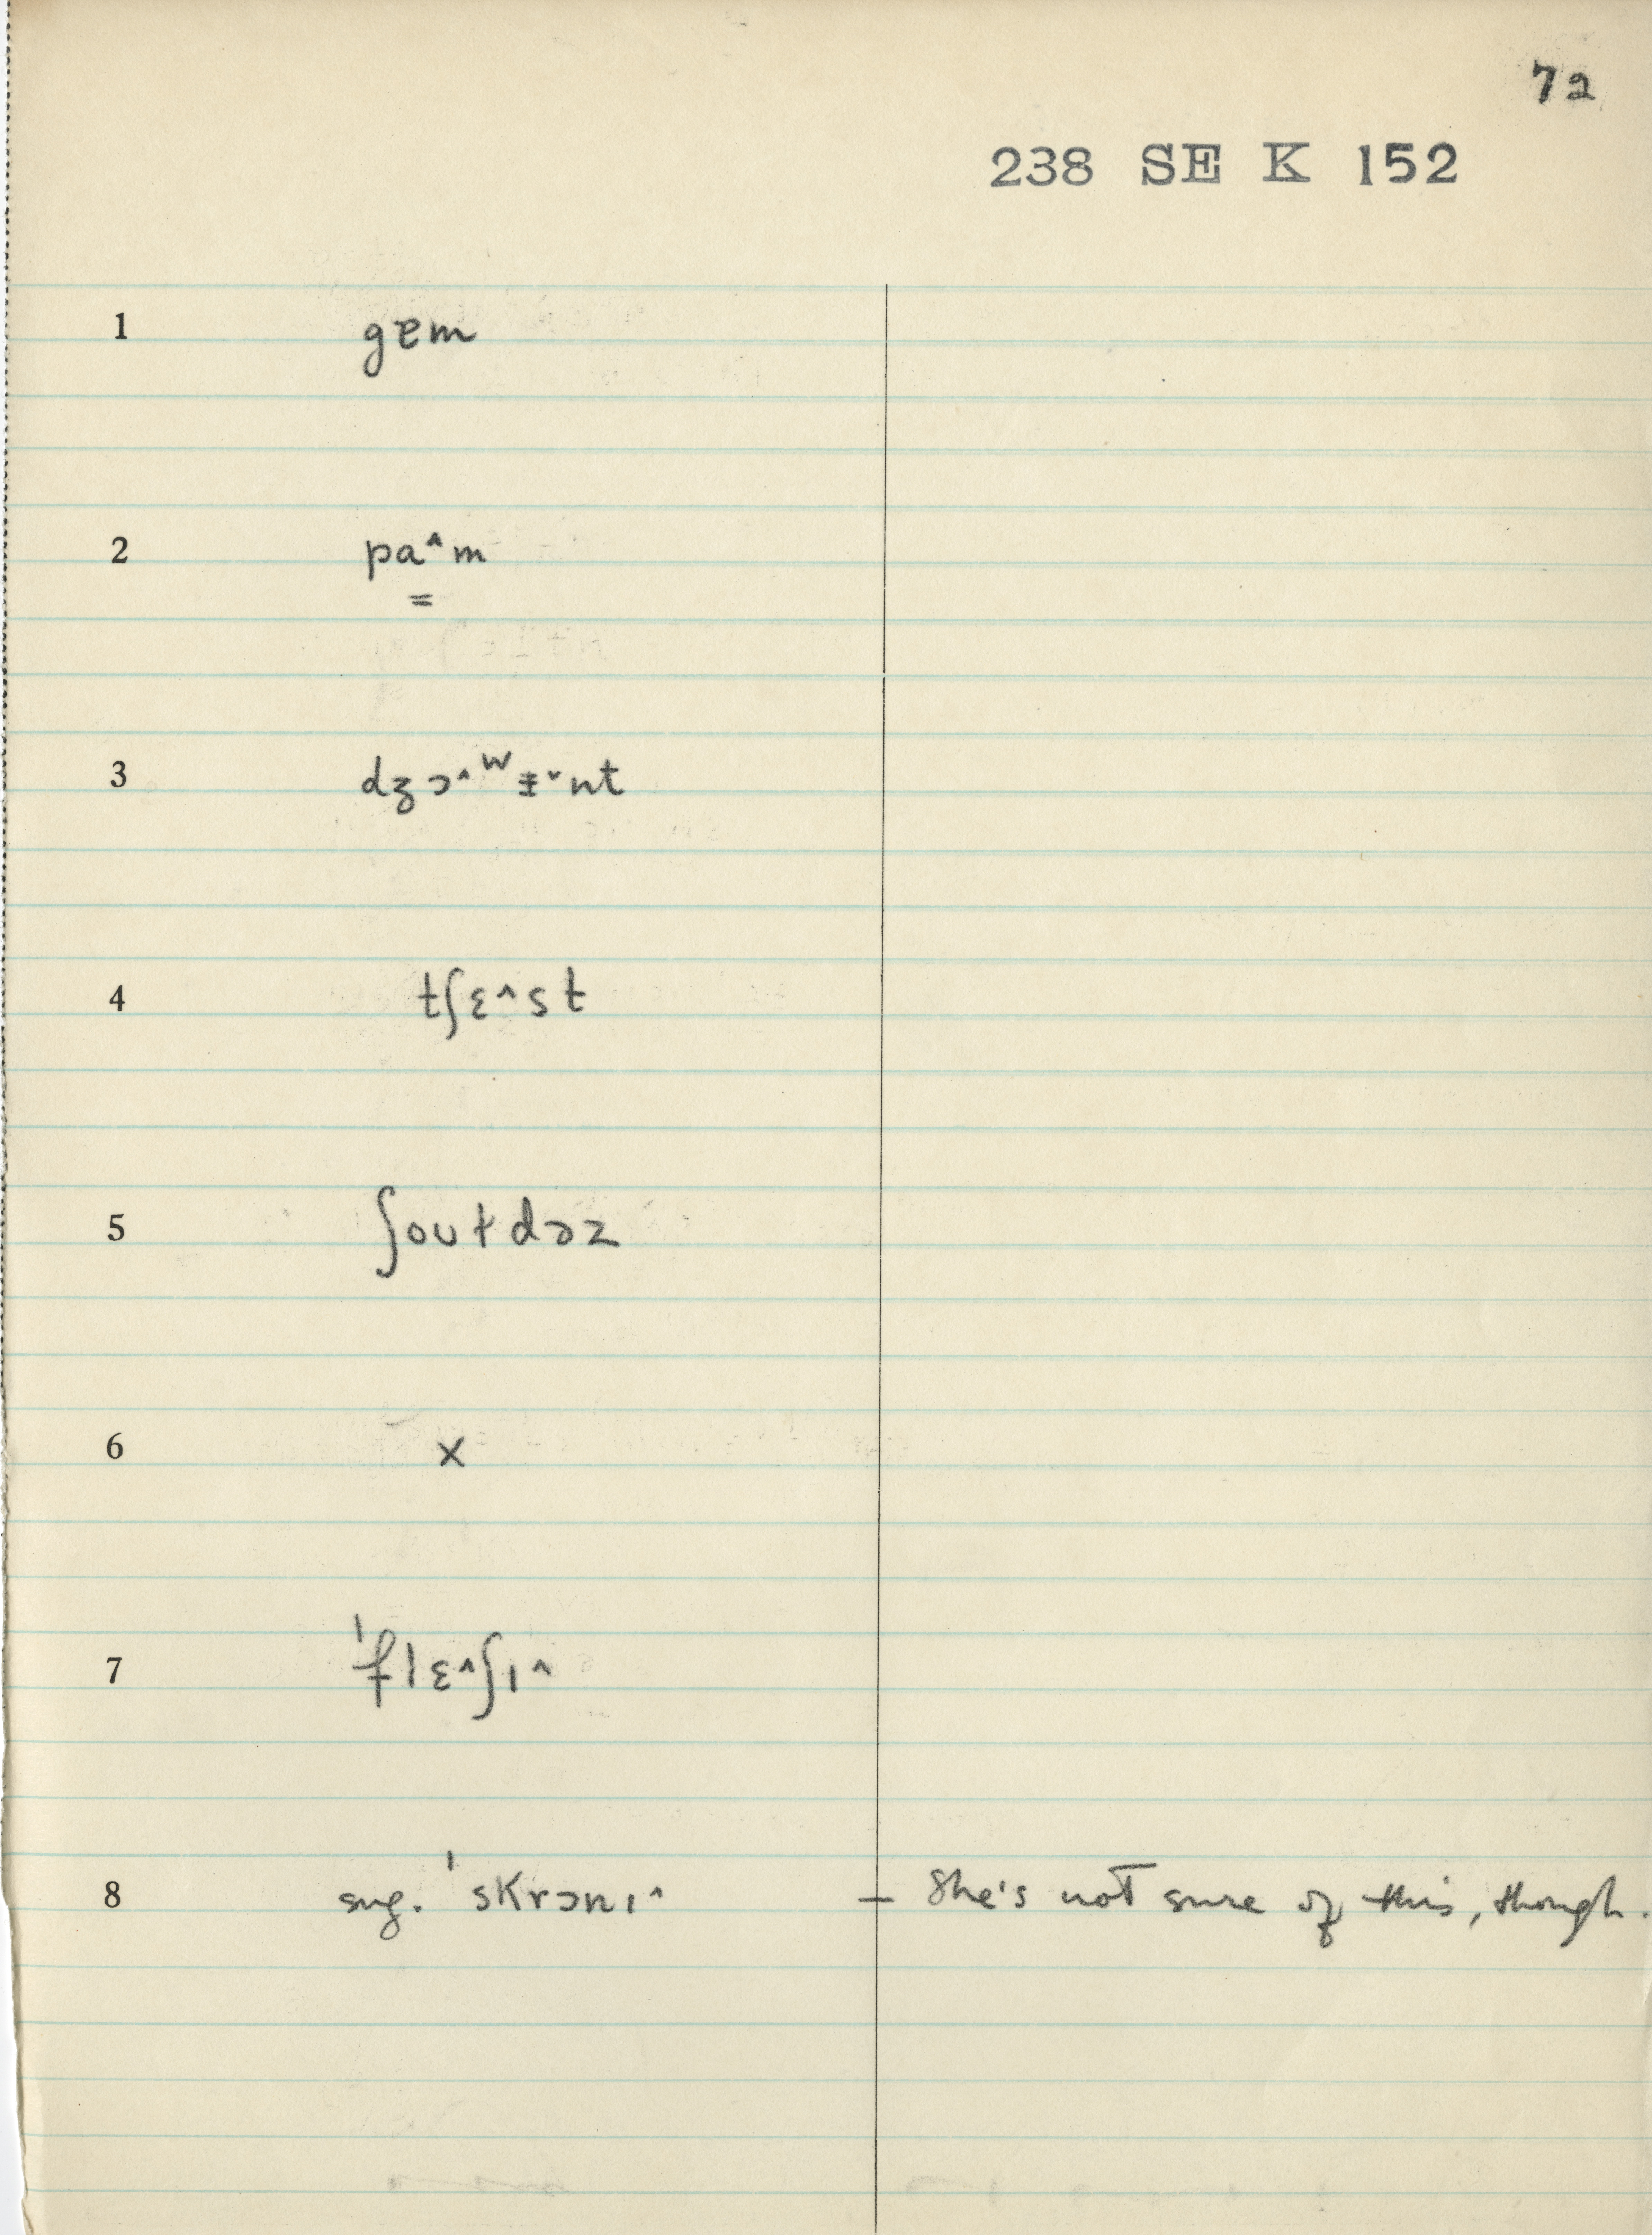 72
238 SE K 152
1 gɐm
2 pa^m
=
3 dʒɔ^ʷɨˇnt
4 tʃɛ^st
5 ʃoʊtdəz
6 x
7 ˈflɛ^ʃɪ^
8 sug. ˈskrɔnɪ^ – She's not sure of this, though.